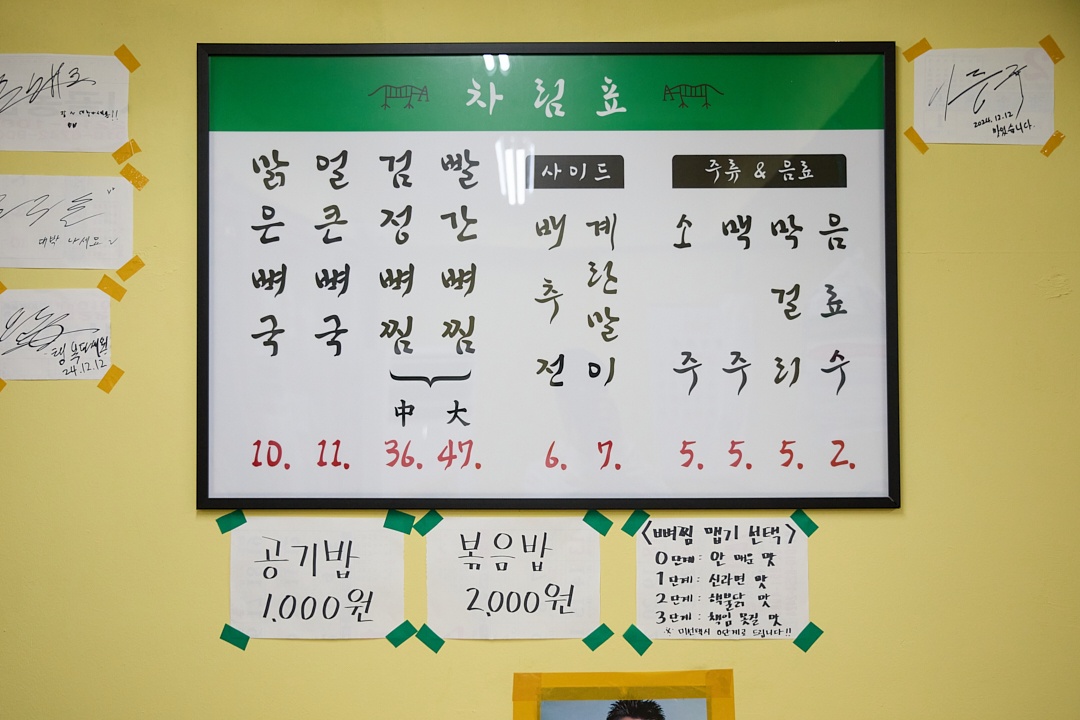 차림표
맑은뼈국
얼큰뼈국
검정뼈찜
빨간뼈찜
中 大
10. 11. 36. 47.
사이드
배추전
계란말이
6. 7.
주류 & 음료
소주
맥주
막걸리
음료수
5. 5. 5. 2.
공기밥
1,000원
볶음밥
2,000원
<뼈찜 맵기 선택>
0단계: 안 매운 맛
1단계: 신라면 맛
2단계: 핵불닭 맛
3단계: 책임 못질 맛
※ 미선택시 0단계로 드립니다!!
대박 나세요
행복하세요
24.12.12
2024.12.12
맛있습니다